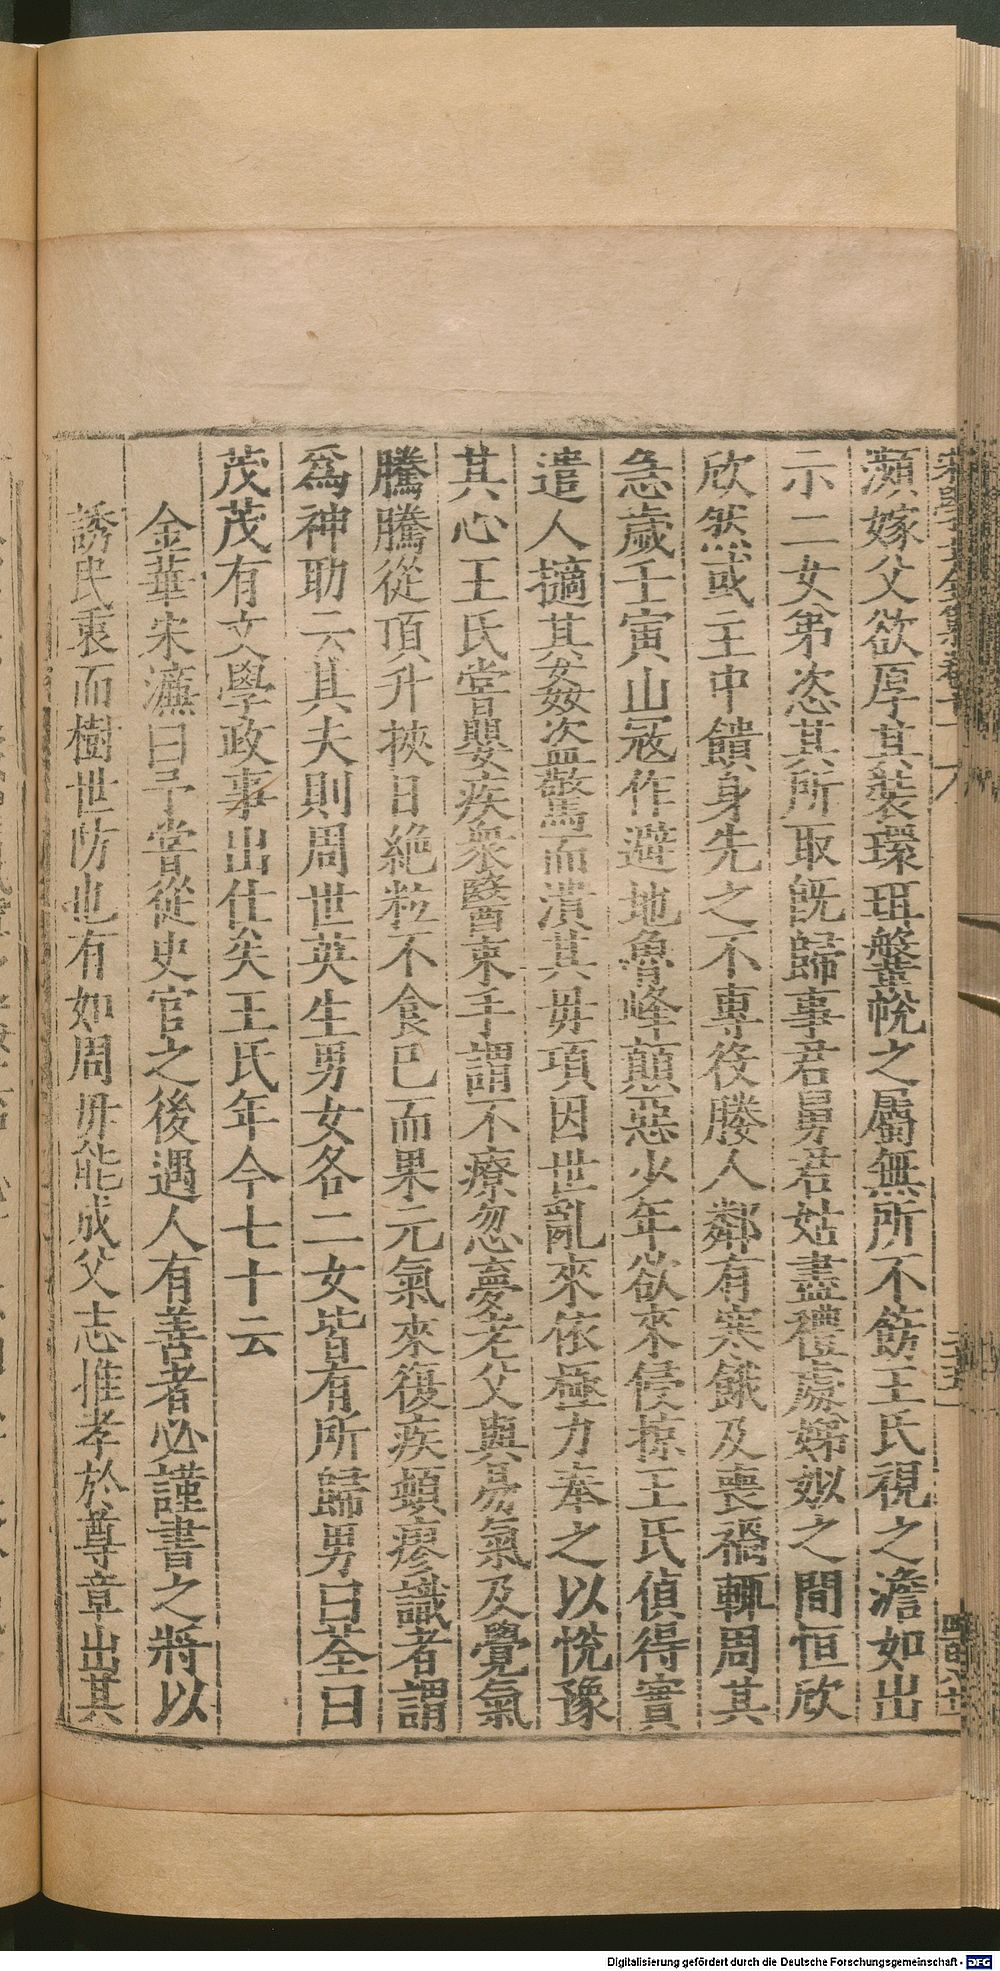 瀕嫁父欲厚其裝環珥鞶帨之屬無所不飭王氏視之澹如出
示二女弟恣其所取旣歸事君舅君姑盡禮處娣姒之間恒欣
欣然或主中饋身先之不專役媵人鄰有寒餓及喪禍輒周其
急歲壬寅山冦作避地魯峰顛惡少年欲來侵掠王氏偵得實
遣人擿其姦盜驚而潰其毋項因世亂來依極力奉之以悅豫
其心王氏嘗嬰疾衆醫束手謂不療忽夢老父與易氣及覺氣
騰騰從頂升挾日絶粒不食已而果元氣來復疾頓瘳識者謂
爲神助云其夫則周世英生男女各二女皆有所歸男曰荃曰
茂茂有文學政事出仕矣王氏年今七十云
金華宋濂曰予嘗從史官之後遇人有善者必謹書之將以
誘民衷而樹世防也有如周毋能成父志惟孝於尊章出其
Digitalisierung gefördert durch die Deutsche Forschungsgemeinschaft - DFG